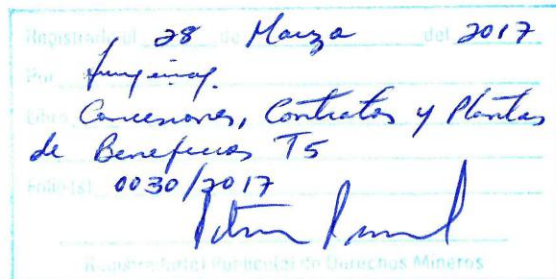 Registrado el 28 de Marzo del 2017
Por
Libro Concesiones, Contratos y Plantas
de Beneficios T5
Folio(s) 0030/2017
Público(a) de Derechos Mineros